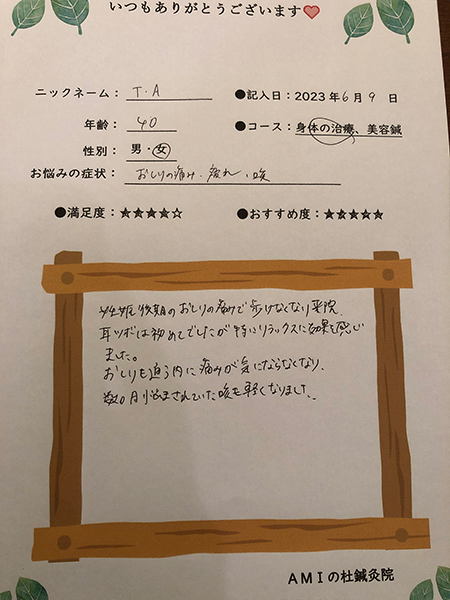 いつもありがとうございます
ニックネーム： T.A
●記入日：2023年6月9日
年齢： 40
●コース：身体の治療、美容鍼
性別： 男・女
お悩みの症状： おしりの痛み・疲れ・咳
●満足度：★★★★☆
●おすすめ度：★★★★★
妊娠後期のおしりの痛みで歩けなくなり来院。
耳ツボは初めてでしたが特にリラックスに効果を感じ
ました。
おしりも通う内に痛みが気にならなくなり、
数ヶ月悩まされていた咳も軽くなりました。
AMIの杜鍼灸院